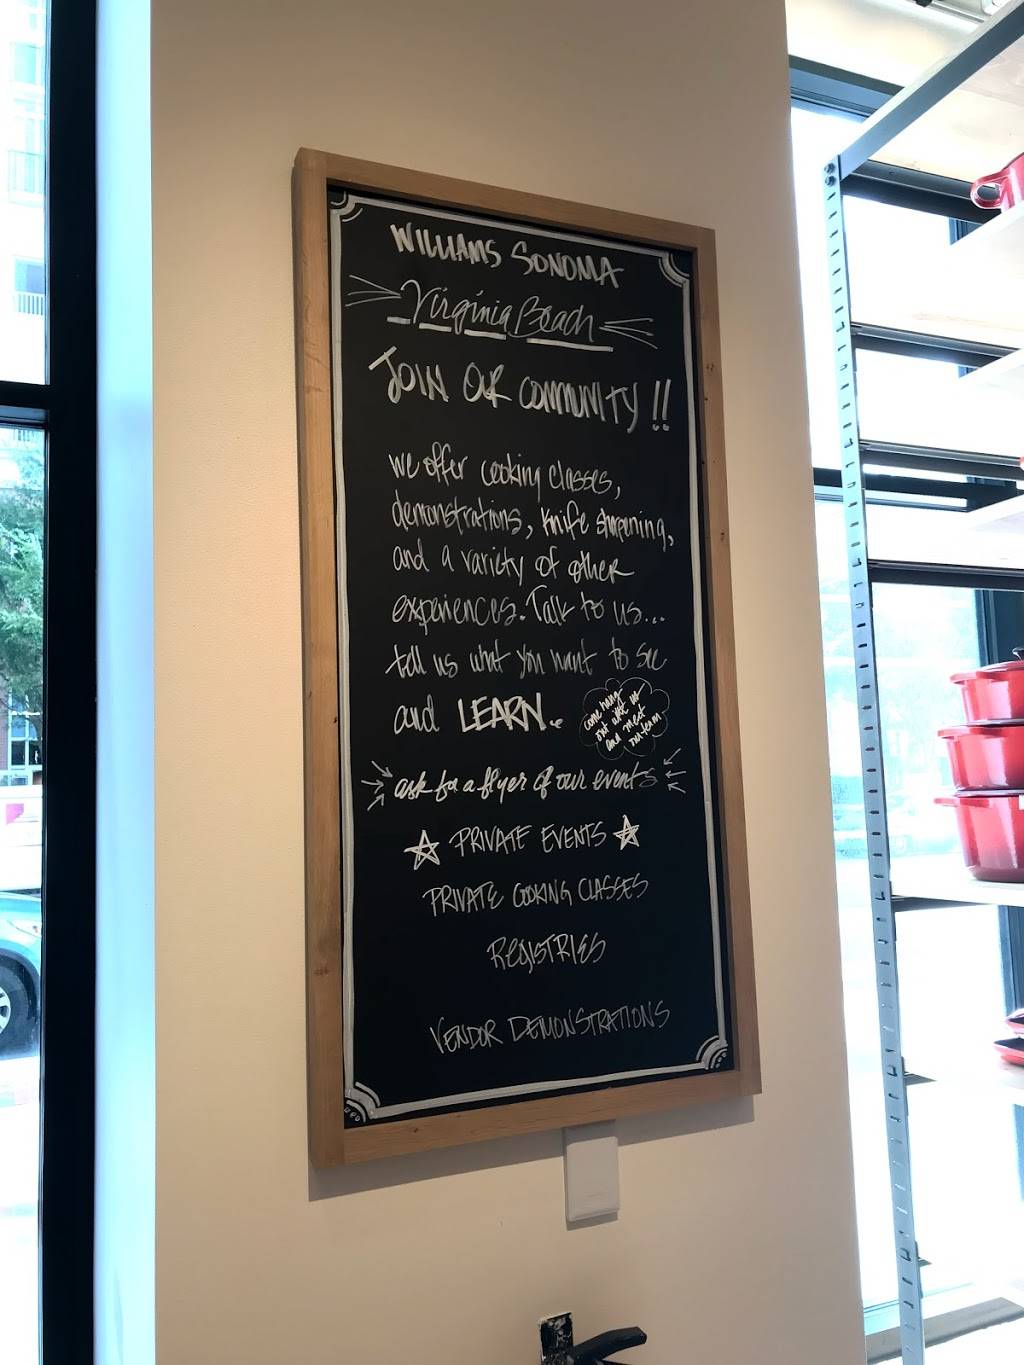 WILLIAMS SONOMA
Virginia Beach
JOIN OUR COMMUNITY!!
we offer cooking classes,
demonstrations, knife sharpening,
and a variety of other
experiences. Talk to us...
tell us what you want to see
and LEARN..
come hang
out with us
and meet
our team
ask for a flyer of our events
PRIVATE EVENTS
PRIVATE COOKING CLASSES
REGISTRIES
VENDOR DEMONSTRATIONS